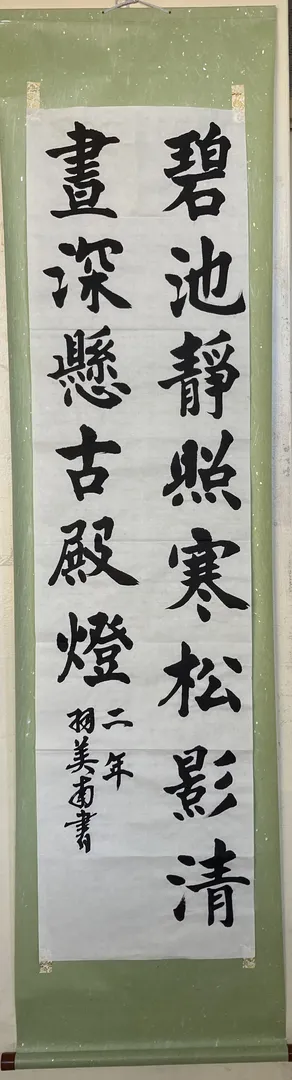 碧池靜照寒松影清
晝深懸古殿燈
二年
羽美南書